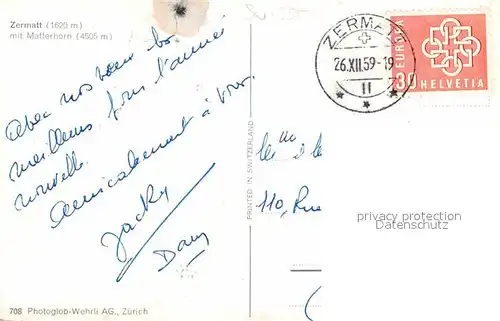 Zermatt (1620 m)
mit Matterhorn (4505 m)
Avec nos vœux les
meilleurs pour l'année
nouvelle.
Amicalement à vous.
Jacky
Dany
708 Photoglob-Wehrli AG., Zürich
PRINTED IN SWITZERLAND
ZERMATT
26.XII.59-19
11
EUROPA
30 HELVETIA
110, Rue
privacy protection
Datenschutz